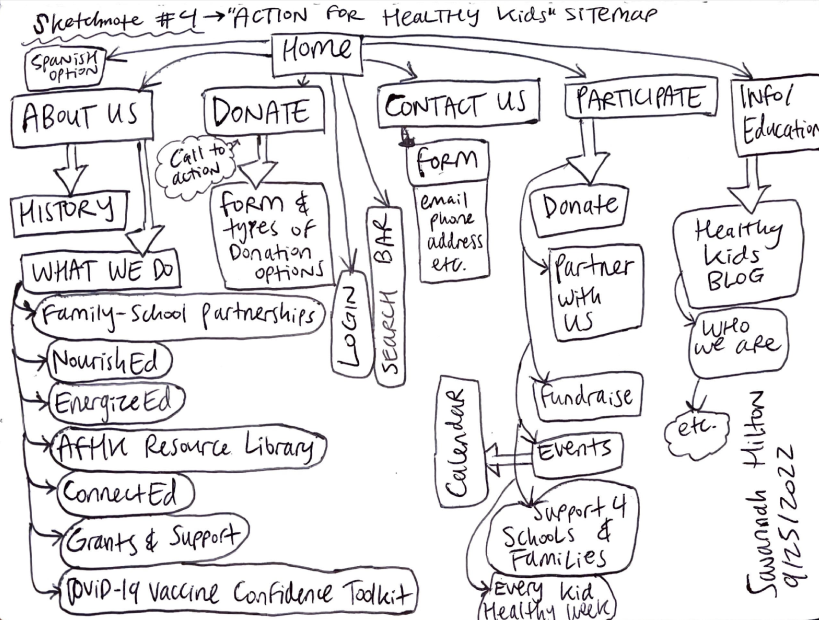 Sketchnote #4 → "ACTION FOR HEALTHY KIDS" SITEMAP
HOME
SPANISH
OPTION
ABOUT US
HISTORY
WHAT WE DO
Family-School Partnerships
NourishEd
EnergizeEd
AFHK Resource Library
ConnectEd
Grants & Support
COVID-19 Vaccine Confidence Toolkit
DONATE
Call to
action
FORM &
types of
Donation
OPTIONS
LOGIN
SEARCH BAR
CONTACT US
FORM
email
phone
address
etc.
PARTICIPATE
Donate
Partner
with
US
Fundraise
Events
Calendar
Support 4
Schools &
Families
Every Kid
Healthy Week
Info/
Education
Healthy
Kids
BLOG
WHO
We are
etc.
Savannah Hilton
9/25/2022